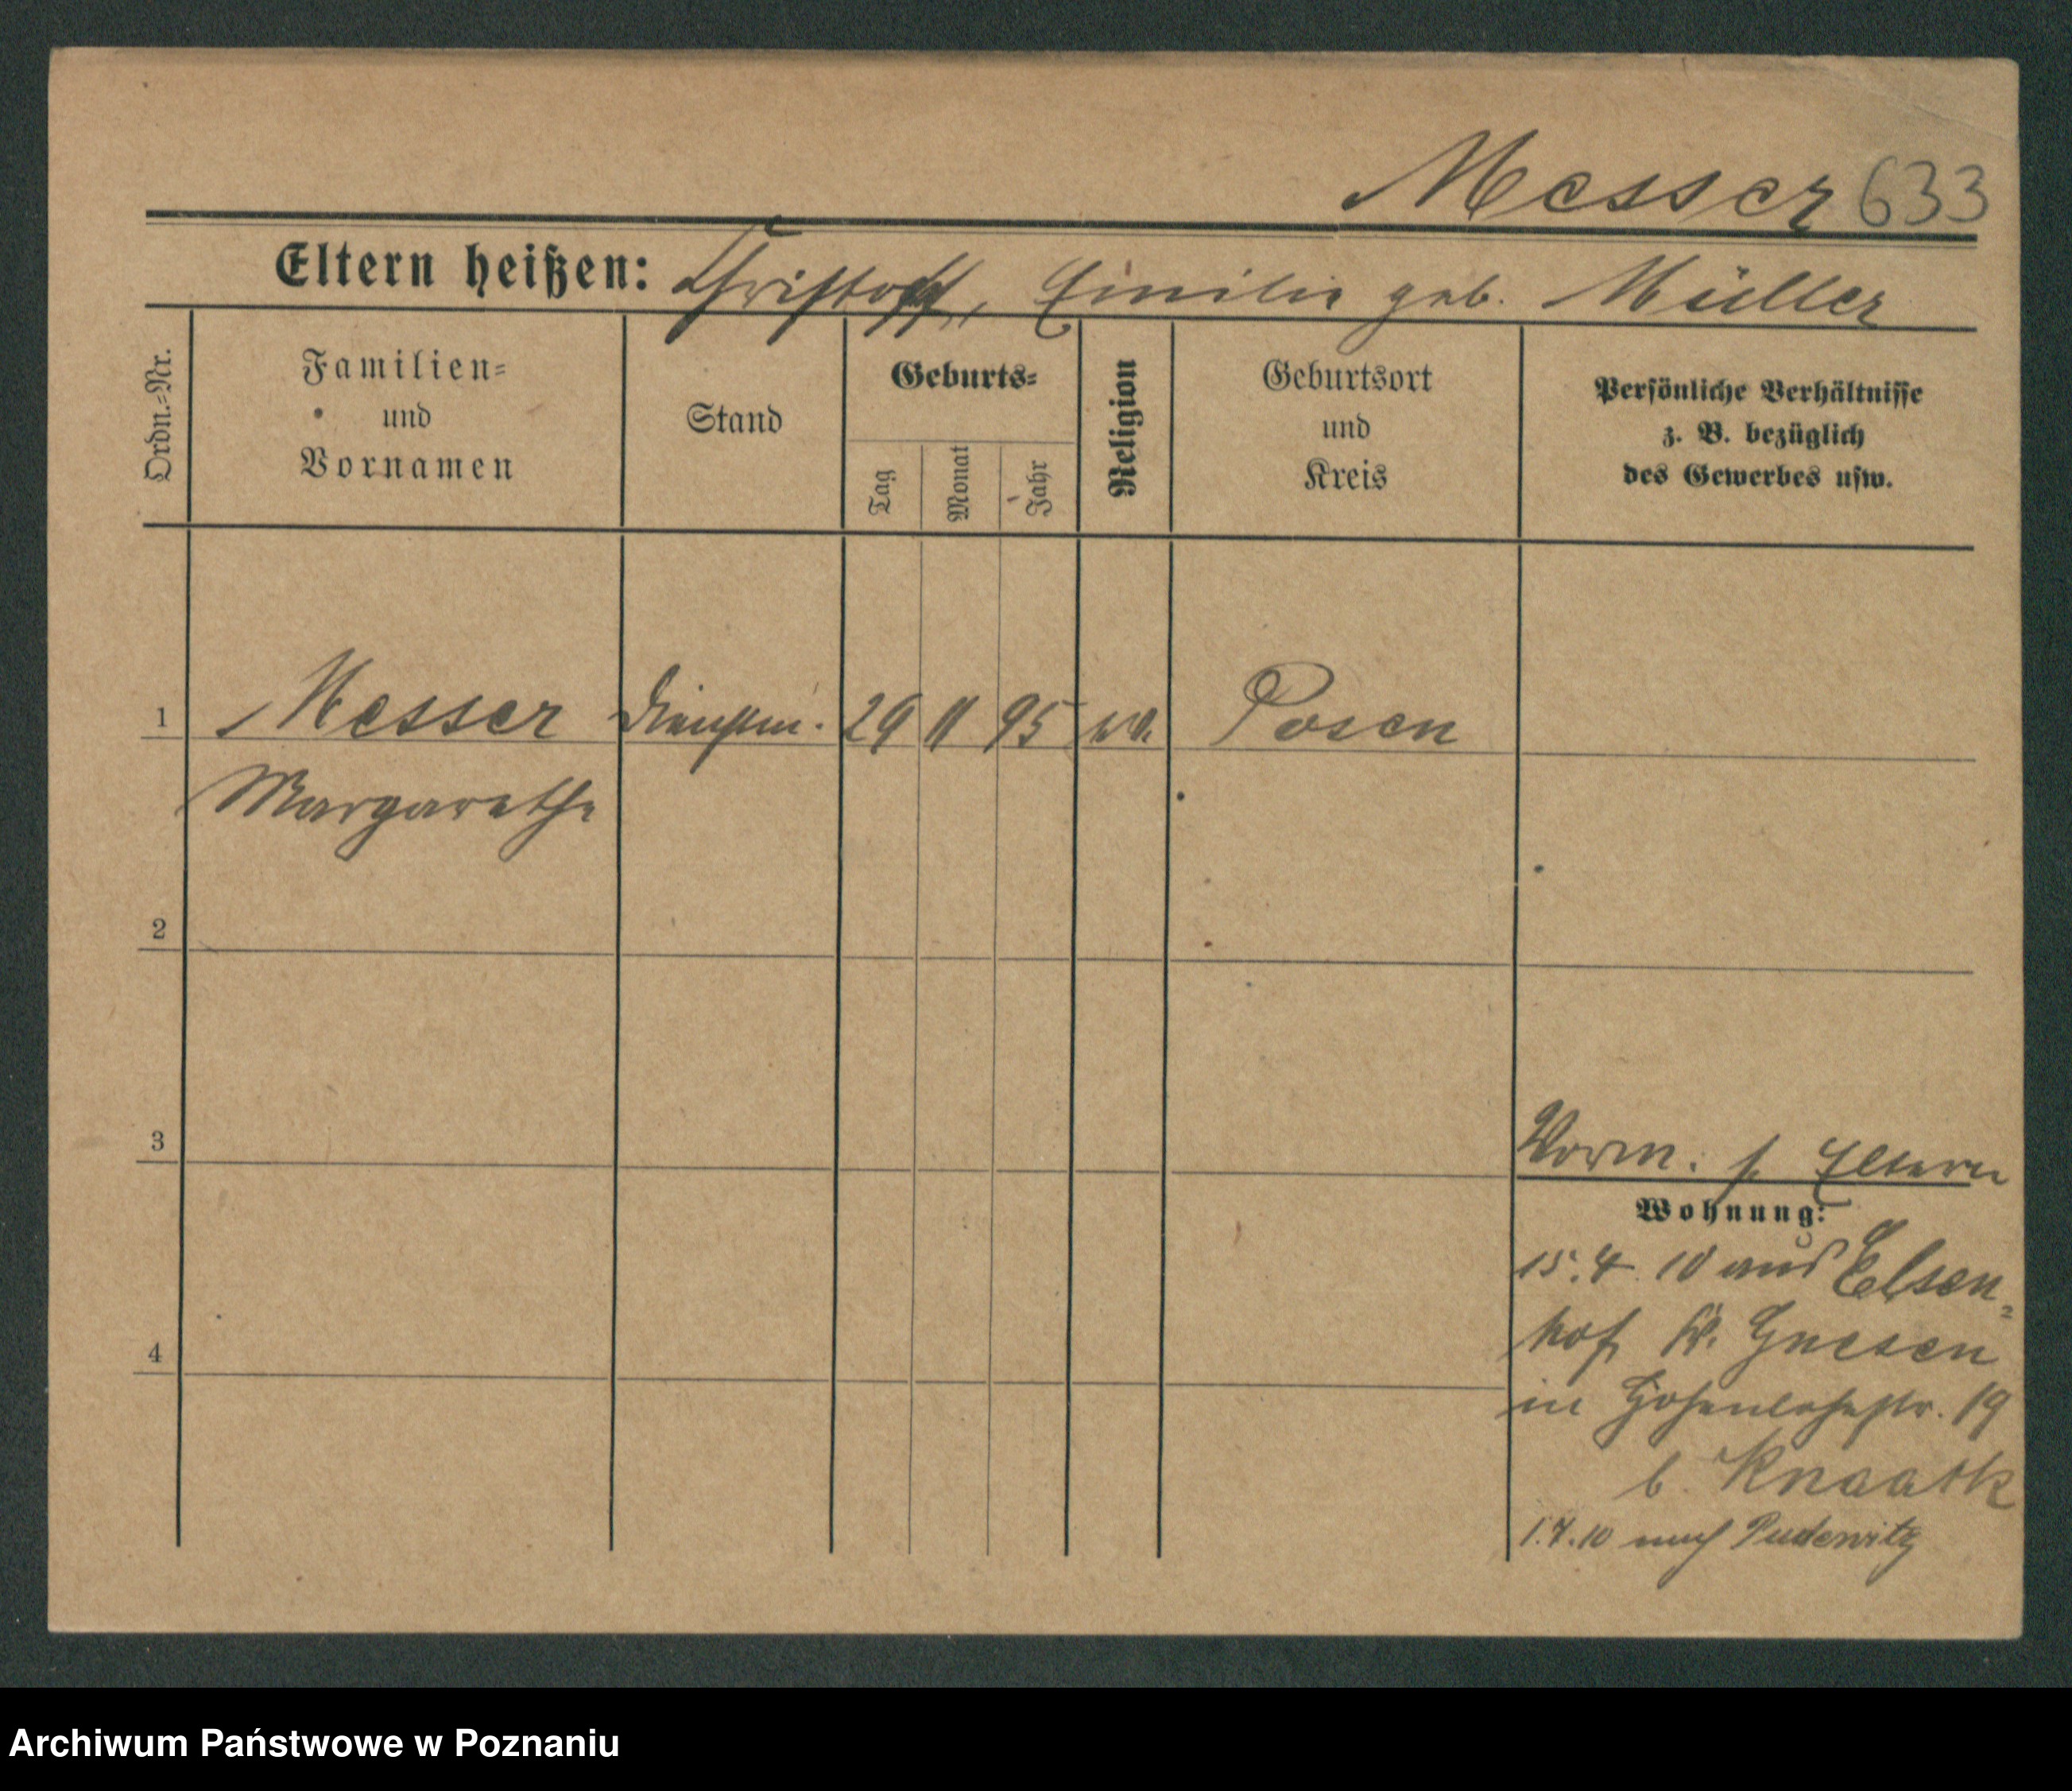 Messer 633
Eltern heißen: Christoph, Emilie geb. Müller
Ordn.=Nr.
Familien=
und
Vornamen
Stand
Geburts=
Tag
Monat
Jahr
Religion
Geburtsort
und
Kreis
Persönliche Verhältnisse
z. B. bezüglich
des Gewerbes usw.
1 Messer Dienstm. 29 11 95 Posen
Margarethe
2
3
Vorm. s. Eltern
Wohnung:
15.4.10 aus Elsen=
4
hof Kr. Gnesen
in Hohenlohestr. 19
b. Knaack
1.7.10 nach Pudewitz
Archiwum Państwowe w Poznaniu